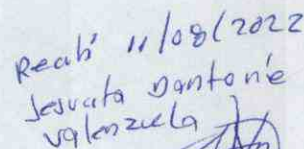 Recibí 11/08/2022
Jesucita Dantorie
Valenzuela